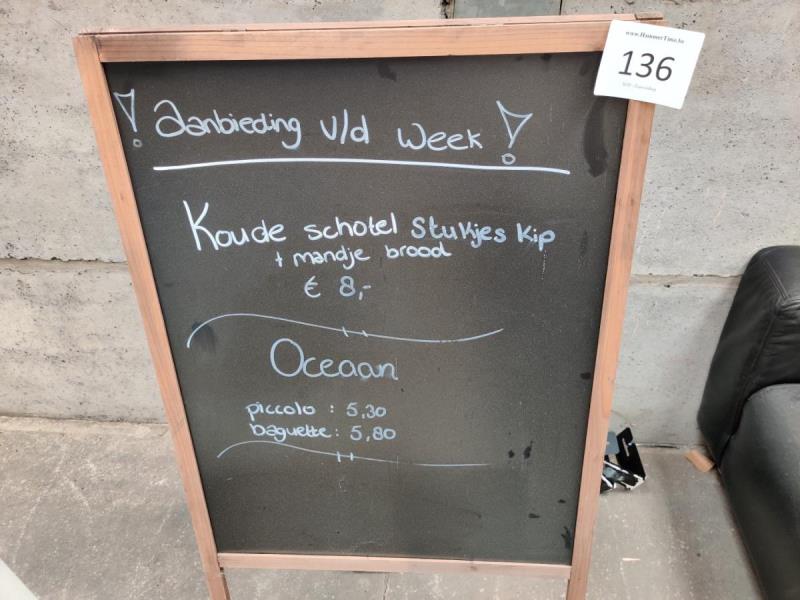 www.HammerTime.be
136
! Aanbieding v/d Week !
Koude schotel Stukjes Kip
+ mandje brood
€ 8,-
Oceaan
piccolo : 5,30
baguette : 5,80